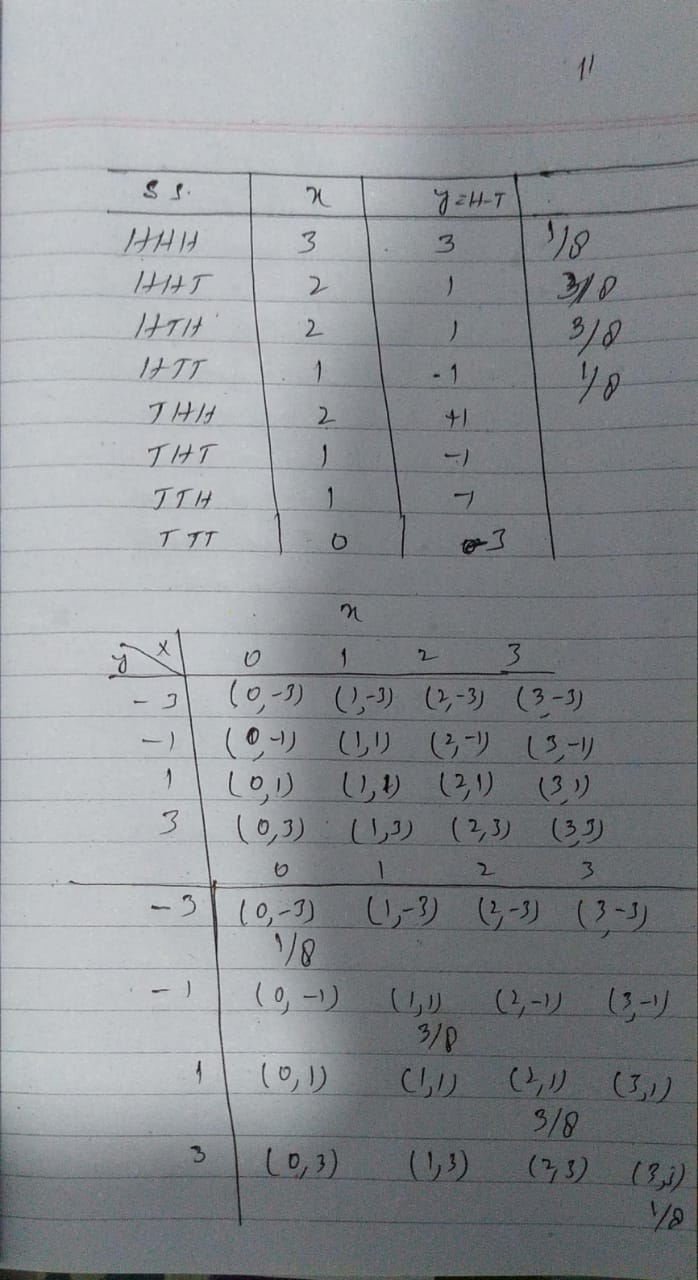 11
S S. x y=H-T
HHH 3 3 1/8
HHT 2 1 3/8
HTH 2 1 3/8
HTT 1 -1 1/8
THH 2 +1
THT 1 -1
TTH 1 -1
TTT 0 -3
x
y x 0 1 2 3
-3 (0,-3) (1,-3) (2,-3) (3,-3)
-1 (0,-1) (1,1) (2,-1) (3,-1)
1 (0,1) (1,1) (2,1) (3,1)
3 (0,3) (1,3) (2,3) (3,3)
0 1 2 3
-3 (0,-3) (1,-3) (2,-3) (3,-3)
1/8
-1 (0,-1) (1,1) (2,-1) (3,-1)
3/8
1 (0,1) (1,1) (2,1) (3,1)
3/8
3 (0,3) (1,3) (2,3) (3,3)
1/8